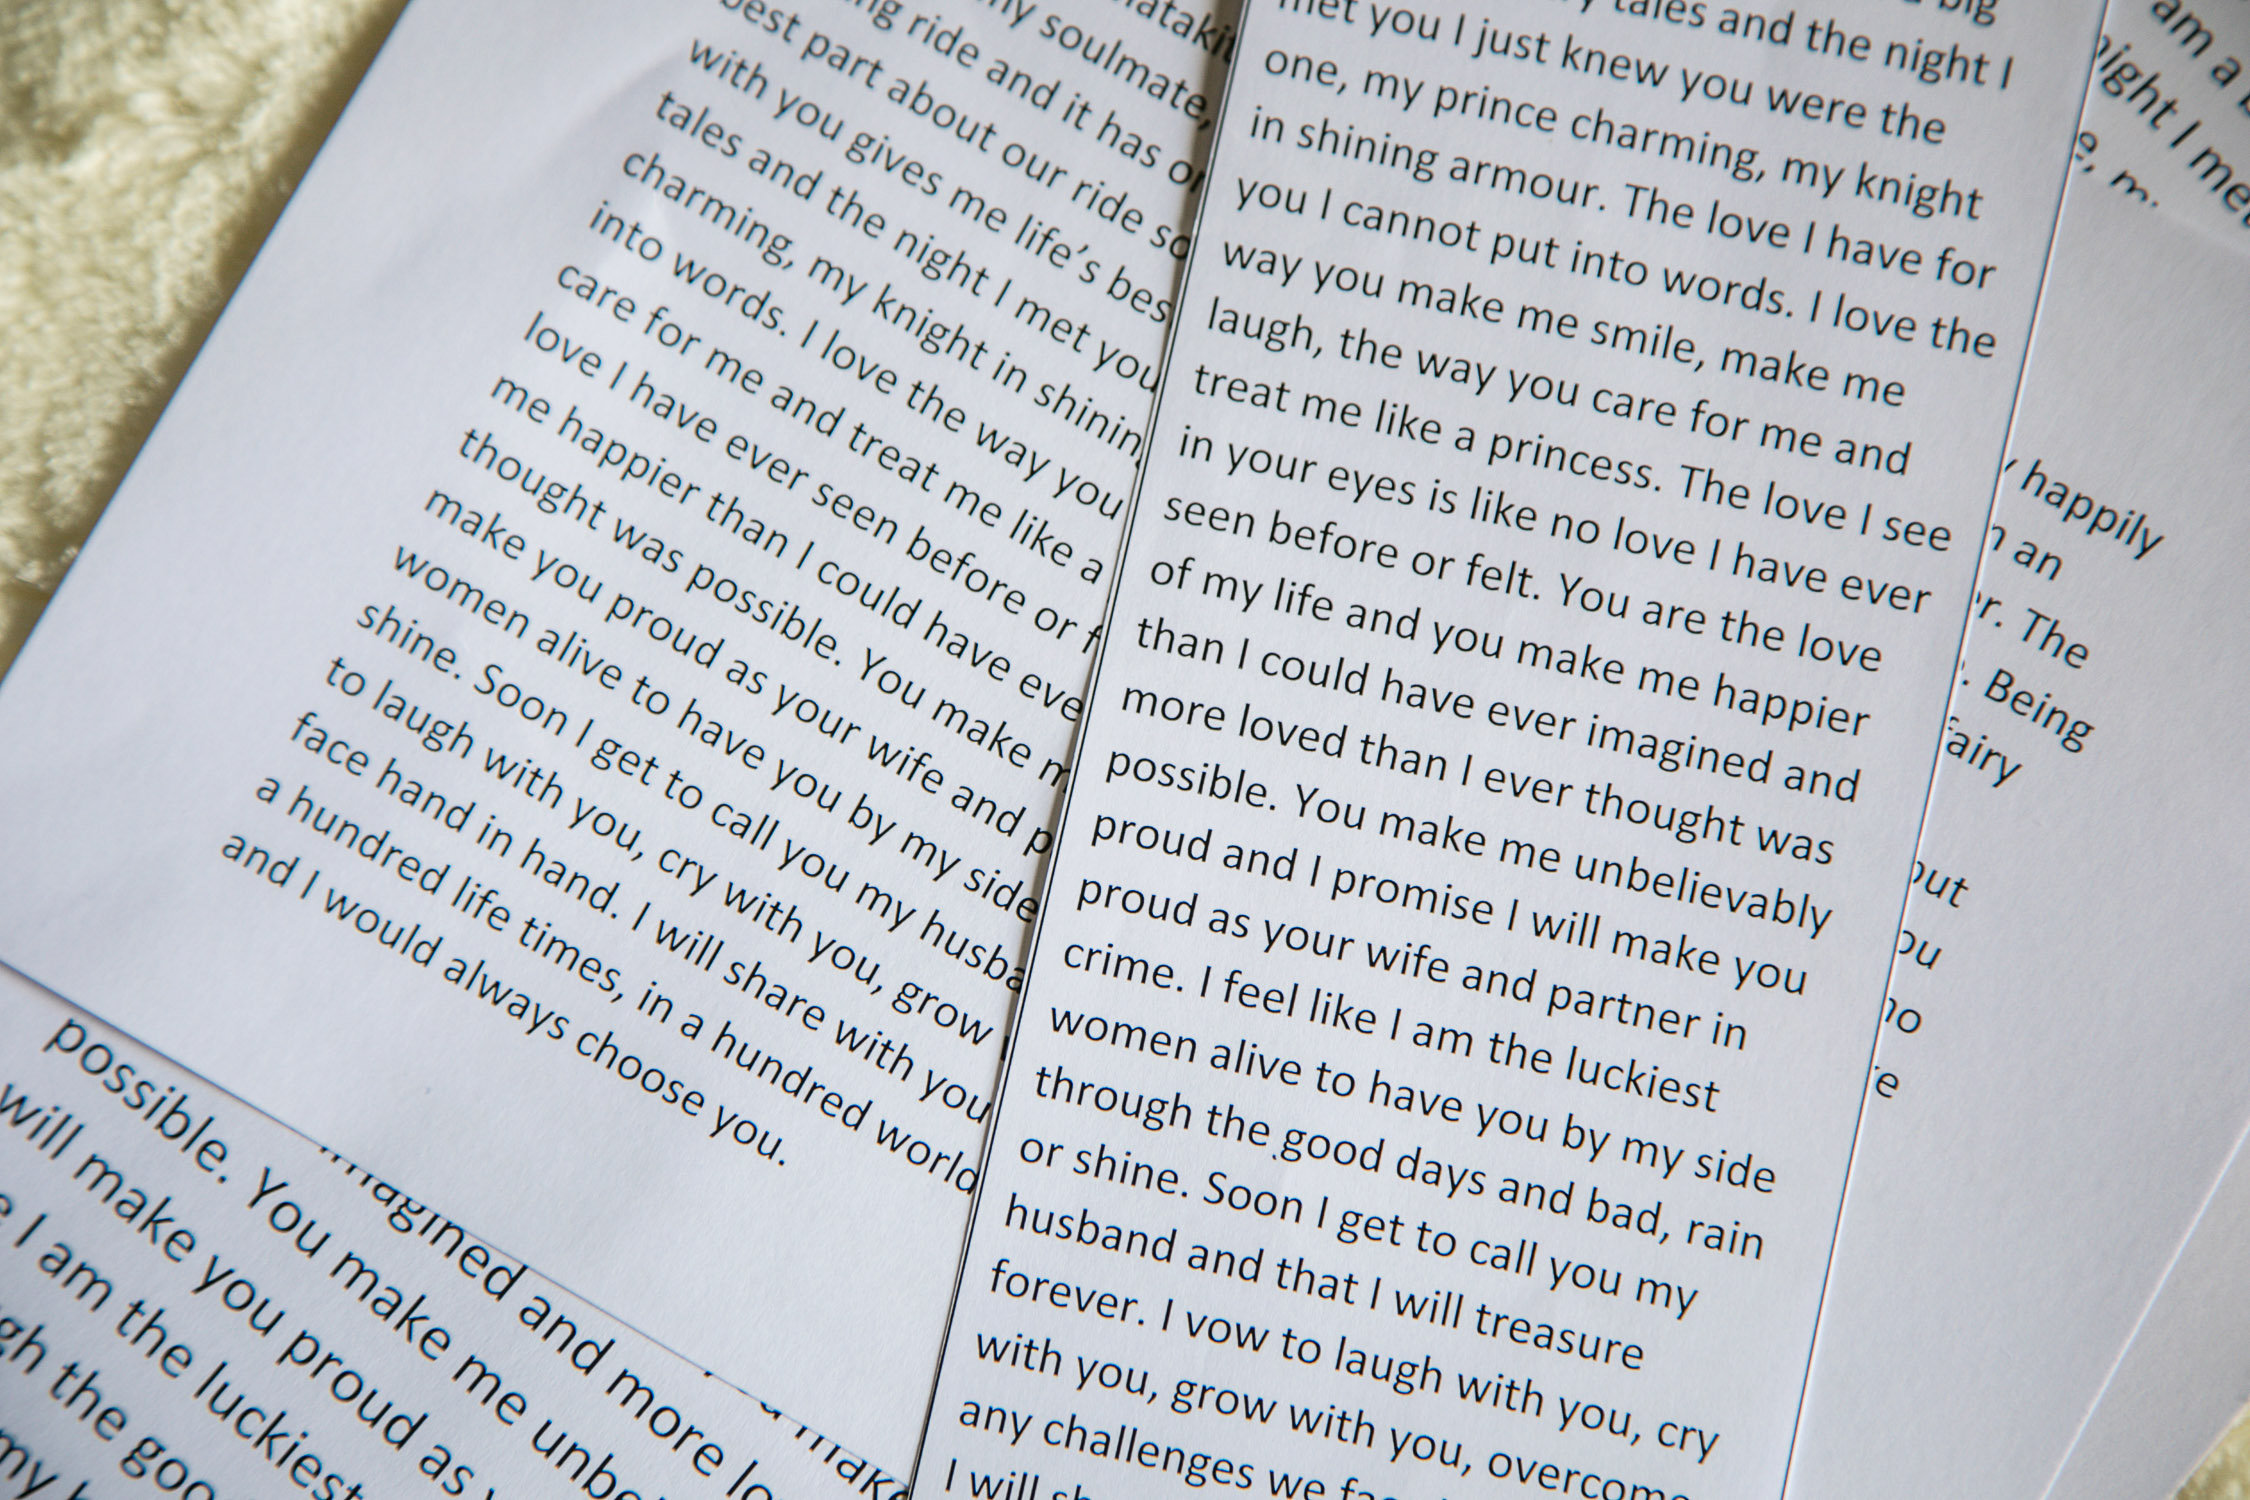 my soulmate,
ng ride and it has
best part about our ride
with you gives me life's
tales and the night I met you
charming, my knight in
into words. I love the way you
care for me and treat me like a
love I have ever seen before or
me happier than I could have
thought was possible. You make
make you proud as your wife and
women alive to have you by my side
shine. Soon I get to call you my
to laugh with you, cry with you, grow
face hand in hand. I will share with you
a hundred life times, in a hundred world
and I would always choose you.
big
tales and the night I
met you I just knew you were the
one, my prince charming, my knight
in shining armour. The love I have for
you I cannot put into words. I love the
way you make me smile, make me
laugh, the way you care for me and
treat me like a princess. The love I see
in your eyes is like no love I have ever
seen before or felt. You are the love
of my life and you make me happier
than I could have ever imagined and
more loved than I ever thought was
possible. You make me unbelievably
proud and I promise I will make you
proud as your wife and partner in
crime. I feel like I am the luckiest
women alive to have you by my side
through the good days and bad, rain
or shine. Soon I get to call you my
husband and that I will treasure
forever. I vow to laugh with you, cry
with you, grow with you, overcome
any challenges we
I will
am a
night I met
happily
an
The
Being
fairy
imagined and more
possible. You make me
will make you proud as
I am the luckiest
the
my